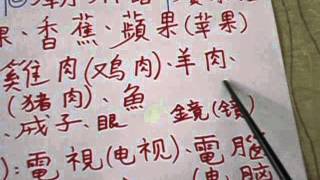 果、香蕉、蘋果(苹果)
雞肉(鸡肉)、羊肉、
(猪肉)、魚
戒子、眼 鏡(镜)
):電視(电视)、電腦
(电脑